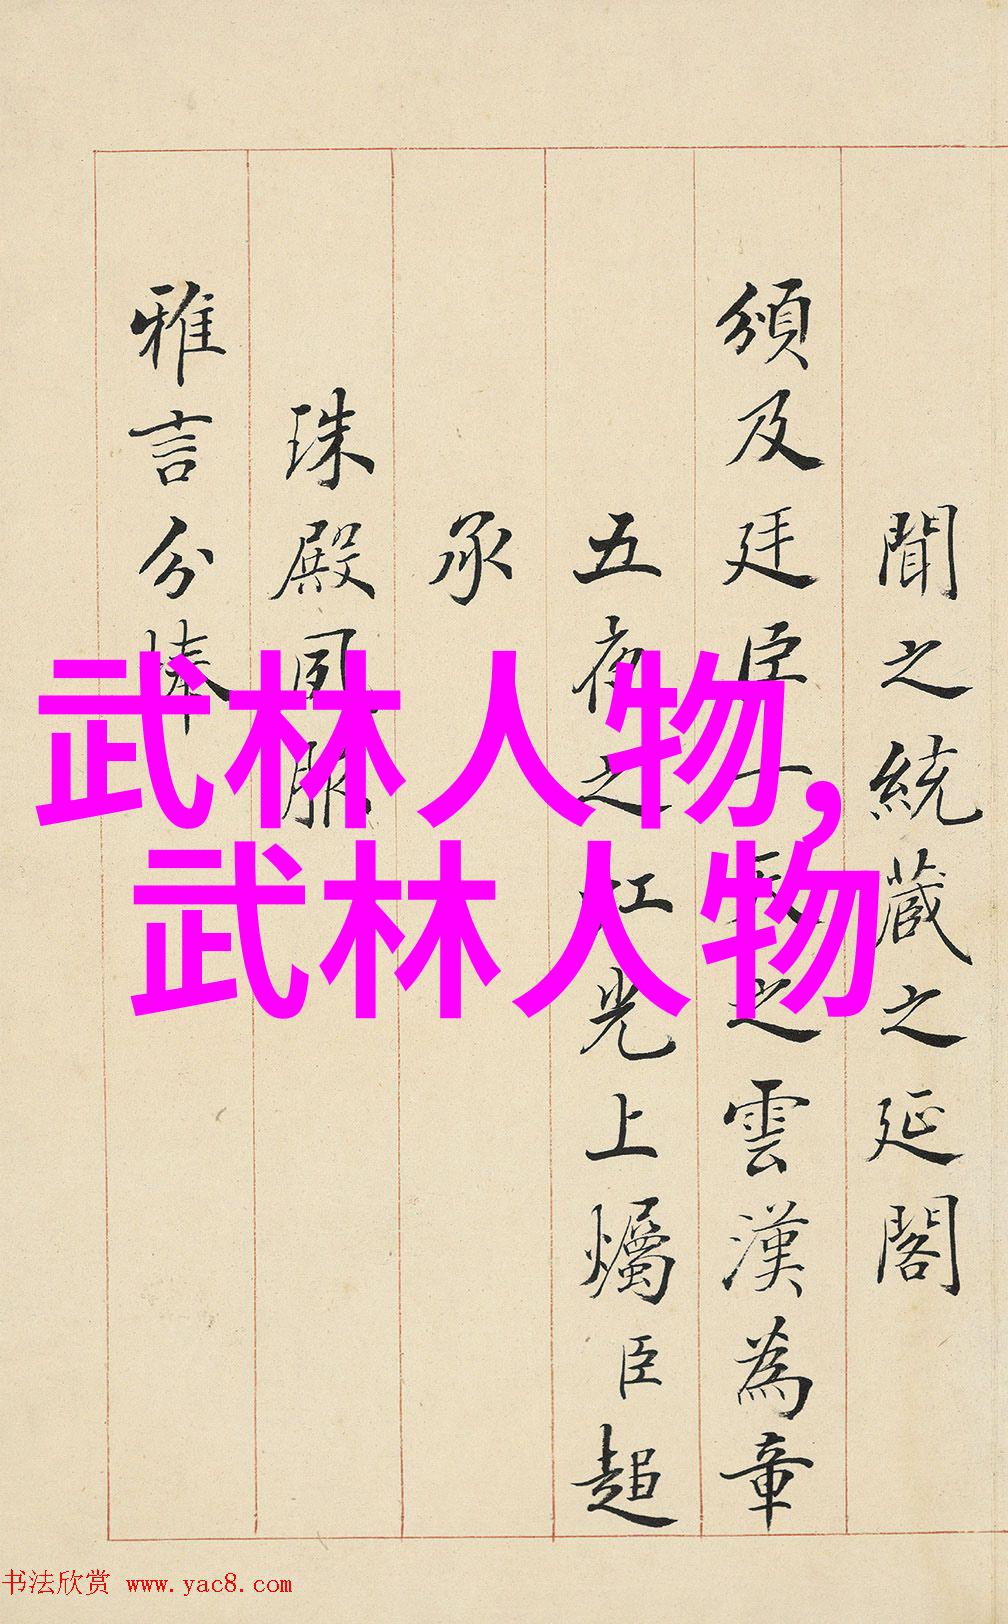 聞之統藏之延閣
頒及廷臣一之雲漢為章
五夜之光上爥臣
承
珠殿
雅言分捧
武林人物,
武林人物
书法欣赏 www.yac8.com